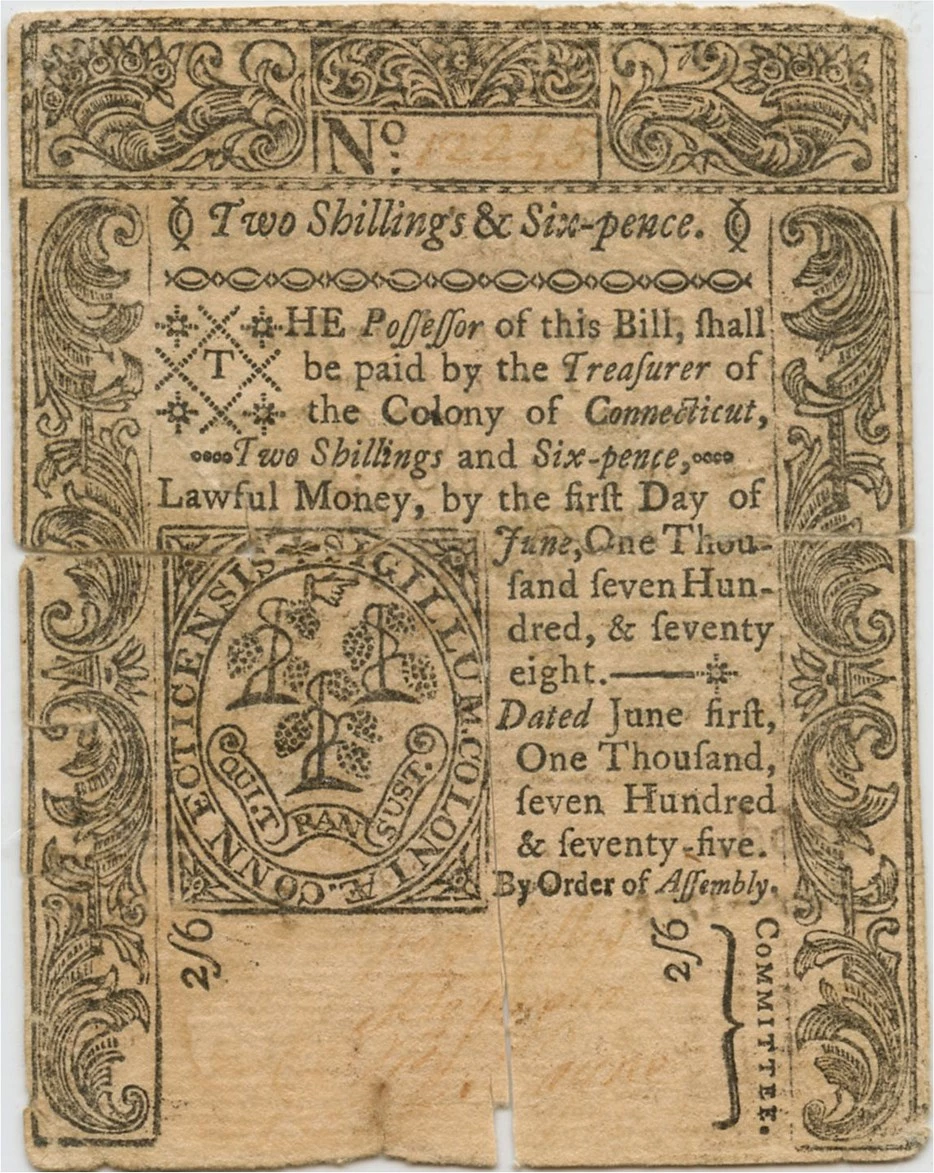 No:
Two Shillings & Six-pence.
THE Poſſeſſor of this Bill, ſhall
be paid by the Treaſurer of
the Colony of Connecticut,
Two Shillings and Six-pence,
Lawful Money, by the firſt Day of
June, One Thou-
ſand ſeven Hun-
dred, & ſeventy
eight.
Dated June firſt,
One Thouſand,
ſeven Hundred
& ſeventy-five.
By Order of Aſſembly.
SIGILLUM.COLONIÆ.CONNECTICENSIS
QUI.T RAN SUST.
2/6
2/6
COMMITTEE.